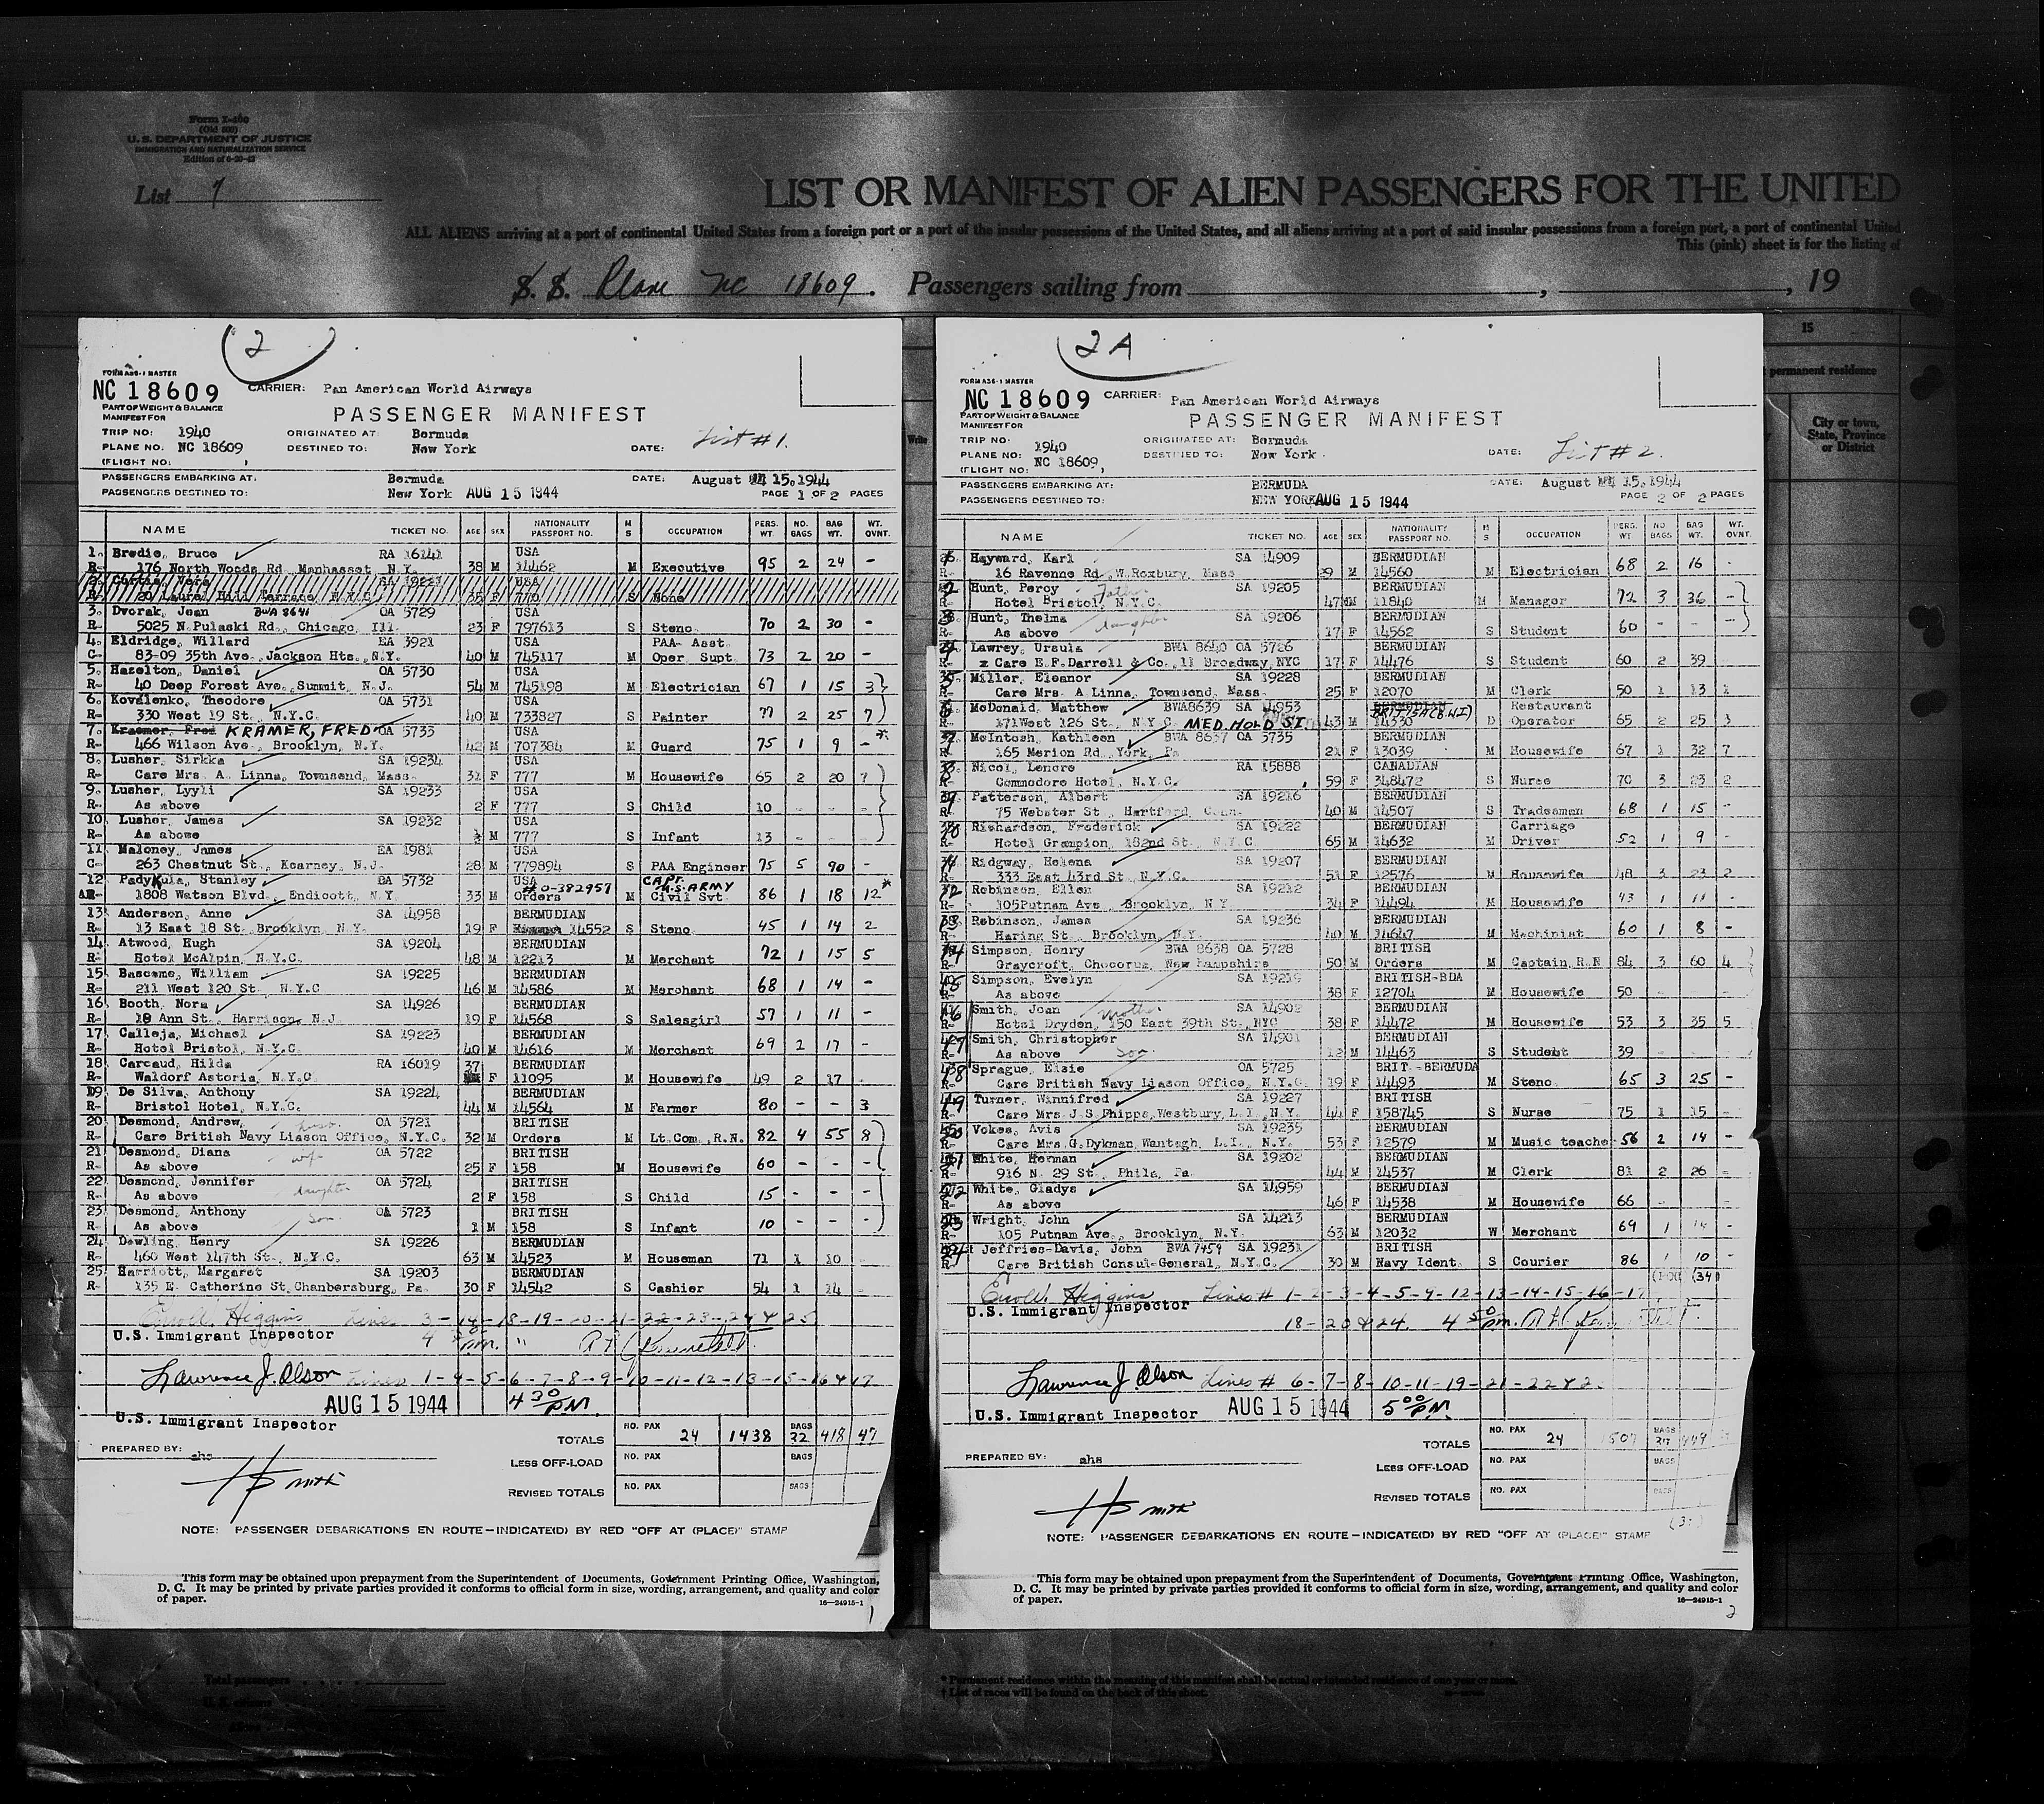 Form I-460
(Old 500)
U. S. DEPARTMENT OF JUSTICE
IMMIGRATION AND NATURALIZATION SERVICE
List
LIST OR MANIFEST OF ALIEN PASSENGERS FOR THE UNITED
ALL ALIENS arriving at a port of continental United States from a foreign port or a port of the insular possessions of the United States, and all aliens arriving at a port of said insular possessions from a foreign port, a port of continental United
This (pink) sheet is for the listing of
S. S. Plane NC 18609. Passengers sailing from , , 19
15
permanent residence
City or town,
State, Province
or District
2
FORM A36-1 MASTER
NC 18609 CARRIER: Pan American World Airways
PART OF WEIGHT & BALANCE
MANIFEST FOR
PASSENGER MANIFEST
TRIP NO: 1940 ORIGINATED AT: Bermuda
PLANE NO: NC 18609 DESTINED TO: New York DATE: List #1.
(FLIGHT NO: )
PASSENGERS EMBARKING AT: Bermuda DATE: August 15, 1944
PASSENGERS DESTINED TO: New York AUG 15 1944 PAGE 1 OF 2 PAGES
NAME TICKET NO. AGE SEX NATIONALITY PASSPORT NO. M S OCCUPATION PERS. WT. NO. BAGS BAG WT. WT. OVNT.
1. Bredie, Bruce RA 16141 USA
R- 176 North Woods Rd, Manhasset N.Y. 38 M 14462 M Executive 95 2 24 -
2. Curtis, Vera SA 19221 USA
R- 20 Laurel Hill Terrace, N.Y.C. 35 F 770 S None
3. Dvorak, Jean BWA 8641 OA 5729 USA
R- 5025 N Pulaski Rd., Chicago, Ill. 23 F 797613 S Steno. 70 2 30 -
4. Eldridge, Willard EA 3921 USA PAA- Asst.
C- 83-09 35th Ave. Jackson Hts., N.Y. 40 M 745117 M Oper. Supt. 73 2 20 -
5. Hazelton, Daniel OA 5730 USA
R- 40 Deep Forest Ave., Summit, N.J. 54 M 745198 M Electrician 67 1 15 3
6. Kovalenko, Theodore OA 5731 USA
R- 330 West 19 St., N.Y.C. 40 M 733827 S Painter 77 2 25 7
7. Kraemer, Fred KRAMER, FRED OA 5733 USA
R- 466 Wilson Ave., Brooklyn, N.Y. 42 M 707384 M Guard 75 1 9 - *
8. Lusher, Sirkka SA 19234 USA
R- Care Mrs. A. Linna, Townsend, Mass. 31 F 777 M Housewife 65 2 20 7
9. Lusher, Lyyli SA 19233 USA
R- As above 2 F 777 S Child 10 - - -
10. Lusher, James SA 19232 USA
R- As above M 777 S Infant 13 - - -
11. Maloney, James EA 1981 USA
C- 263 Chestnut St., Kearney, N.J. 28 M 779894 S PAA Engineer 75 5 90 -
12 Padykula, Stanley OA 5732 USA # 0-382957 CAPT. U.S. ARMY
R- 1808 Watson Blvd., Endicott, N.Y. 33 M Orders M Civil Svt. 86 1 18 12 *
13. Anderson, Anne SA 14958 BERMUDIAN
R- 13 East 18 St. Brooklyn, N.Y. 19 F 14552 S Steno. 45 1 14 2
14. Atwood, Hugh SA 19204 BERMUDIAN
R- Hotel McAlpin, N.Y.C. 48 M 12213 M Merchant 72 1 15 5
15. Bascome, William SA 19225 BERMUDIAN
R- 211 West 120 St. N.Y.C 46 M 14586 M Merchant 68 1 14 -
16. Booth, Nora SA 14926 BERMUDIAN
R- 18 Ann St., Harrison, N.J. 19 F 14568 S Salesgirl 57 1 11 -
17. Calleja, Michael SA 19223 BERMUDIAN
R- Hotel Bristol, N.Y.C. 40 M 14616 M Merchant 69 2 17 -
18. Carcaud, Hilda RA 16019 37 BERMUDIAN
R- Waldorf Astoria, N.Y.C F 11095 M Housewife 49 2 17
19. De Silva, Anthony SA 19224 BERMUDIAN
R- Bristol Hotel, N.Y.C. 44 M 14564 M Farmer 80 - - 3
20. Desmond, Andrew, OA 5721 BRITISH
R- Care British Navy Liason Office, N.Y.C. 32 M Orders M Lt.Com.,R.N. 82 4 55 8
21. Desmond, Diana wife OA 5722 BRITISH
R- As above 25 F 158 M Housewife 60 - - -
22. Desmond, Jennifer daughter OA 5724 BRITISH
R- As above 2 F 158 S Child 15 - - -
23. Desmond, Anthony son OA 5723 BRITISH
R- As above 1 M 158 S Infant 10 - - -
24. Dowling, Henry SA 19226 BERMUDIAN
R- 460 West 147th St., N.Y.C. 63 M 14523 M Houseman 71 1 10
25. Harriott, Margaret SA 19203 BERMUDIAN
R- 135 E. Catherine St. Chanbersburg, Pa. 30 F 14542 S Cashier 54 1 14
Higgins Lines 3-14-18-19-20-21-22-23-24 & 25
U.S. Immigrant Inspector 4 PM.
Lawrence J. Olson Lines 1-4-5-6-7-8-9-10-11-12-13-15-16 & 17
AUG 15 1944 4 30 PM.
U.S. Immigrant Inspector
PREPARED BY: ahs
TOTALS NO. PAX 24 1438 BAGS 32 418 47
LESS OFF-LOAD NO. PAX BAGS
REVISED TOTALS NO. PAX BAGS
NOTE: PASSENGER DEBARKATIONS EN ROUTE—INDICATE(D) BY RED "OFF AT (PLACE)" STAMP
This form may be obtained upon prepayment from the Superintendent of Documents, Government Printing Office, Washington,
D. C. It may be printed by private parties provided it conforms to official form in size, wording, arrangement, and quality and color
of paper. 16—24915-1
1
2A
FORM A36-1 MASTER
NC 18609 CARRIER: Pan American World Airways
PART OF WEIGHT & BALANCE
MANIFEST FOR
PASSENGER MANIFEST
TRIP NO: 1940 ORIGINATED AT: Bermuda
PLANE NO: NC 18609 DESTINED TO: New York DATE: List #2.
(FLIGHT NO: )
PASSENGERS EMBARKING AT: BERMUDA DATE: August 15, 1944
PASSENGERS DESTINED TO: NEW YORK AUG 15 1944 PAGE 2 OF 2 PAGES
NAME TICKET NO. AGE SEX NATIONALITY PASSPORT NO. M S OCCUPATION PERS. WT NO BAGS BAG WT. WT. OVNT.
1 Hayward, Karl SA 14909 BERMUDIAN
R- 16 Ravenne Rd., W.Roxbury, Mass. 29 M 14560 M Electrician 68 2 16 -
2 Hunt, Percy Father SA 19205 BERMUDIAN
R- Hotel Bristol, N.Y.C. 47 M 11840 M Manager 72 3 36 -
3 Hunt, Thelma daughter SA 19206 BERMUDIAN
R- As above 17 F 14562 S Student 60 - - -
4 Lawrey, Ursula BWA 8640 OA 5726 BERMUDIAN
R- Care E.F.Darrell & Co., 11 Broadway, NYC 17 F 14476 S Student 60 2 39
5 Miller, Eleanor SA 19228 BERMUDIAN
R- Care Mrs. A Linna, Townsend, Mass. 25 F 12070 M Clerk 50 1 13 1
6 McDonald, Matthew BWA8639 SA 14953 BERMUDIAN BRITISH (B.WI) Restaurant
R- 171West 126 St., N.Y.C. MED. HOLD SI 43 M 14330 D Operator 65 2 25 3
7 McIntosh, Kathleen BWA 8637 OA 5735 BERMUDIAN
R- 165 Merion Rd., York, Pa 21 F 13039 M Housewife 67 1 32 7
8 Nicol, Lenore RA 15888 CANADIAN
R- Commodore Hotel, N.Y.C. 59 F 348472 S Nurse 70 3 23 2
9 Patterson, Albert SA 19216 BERMUDIAN
R- 75 Webster St., Hartford, Conn. 40 M 14507 S Tradesman 68 1 15 -
10 Richardson, Frederick SA 19222 BERMUDIAN Carriage
R- Hotel Grampion, 182nd St., N.Y.C. 65 M 14632 M Driver 52 1 9 -
11 Ridgway, Helena SA 19207 BERMUDIAN
R- 333 East 43rd St., N.Y.C. 51 F 12576 M Housewife 48 3 23 2
12 Robinson, Ellen SA 19212 BERMUDIAN
R- 105Putnam Ave., Brooklyn, N.Y. 34 F 14494 M Housewife 43 1 11 -
13 Robinson, James SA 19236 BERMUDIAN
R- Haring St., Brooklyn, N.Y. 40 M 14647 M Machinist 60 1 8 -
14 Simpson, Henry BWA 8638 OA 5728 BRITISH
R- Graycroft, Chocorua, New Hampshire 50 M Orders M Captain,R.N 84 3 60 4
15 Simpson, Evelyn SA 19219 BRITISH-BDA
R- As above 38 F 12704 M Housewife 50 -
16 Smith, Joan mother SA 14902 BERMUDIAN
R- Hotel Dryden, 150 East 39th St., NYC 38 F 14472 M Housewife 53 3 35 5
17 Smith, Christopher SA 14901 BERMUDIAN
R- As above Son. 12 M 14463 S Student 39 -
18 Sprague, Elsie OA 5725 BRIT.-BERMUDA
R- Care British Navy Liason Office, N.Y.C. 19 F 14493 M Steno. 65 3 25 -
19 Turner, Winnifred SA 19227 BRITISH
R- Care Mrs. J.S. Phipps, Westbury, L.I., N.Y. 44 F 158745 S Nurse 75 1 15
20 Vokes, Avis SA 19235 BERMUDIAN
R- Care Mrs.G.Dykman, Wantagh, L.I., N.Y. 53 F 12579 M Music teache 56 2 14 -
21 White, Herman SA 19202 BERMUDIAN
R- 916 N. 29 St., Phila, Pa. 44 M 14537 M Clerk 81 2 26 -
22 White, Gladys SA 14959 BERMUDIAN
R- As above 46 F 14538 M Housewife 66
23 Wright, John SA 14213 BERMUDIAN
R- 105 Putnam Ave., Brooklyn, N.Y. 63 M 12032 W Merchant 69 1 14 -
24 Jeffries-Davis, John BWA 7459 SA 19231 BRITISH
R- Care British Consul-General, N.Y.C. 30 M Navy Ident. S Courier 86 1 10 -
Higgins Lines # 1-2-3-4-5-9-12-13-14-15-16-17
U.S. Immigrant Inspector 18-20 & 24. 4 50 PM.
Lawrence J. Olson Lines # 6-7-8-10-11-19-21-22 & 2
U.S. Immigrant Inspector AUG 15 1944 5 00 PM.
PREPARED BY: ahs
TOTALS NO. PAX 24 1507 BAGS 449
LESS OFF-LOAD NO. PAX BAGS
REVISED TOTALS NO. PAX BAGS
NOTE: PASSENGER DEBARKATIONS EN ROUTE—INDICATE(D) BY RED "OFF AT (PLACE)" STAMP
This form may be obtained upon prepayment from the Superintendent of Documents, Government Printing Office, Washington,
D. C. It may be printed by private parties provided it conforms to official form in size, wording, arrangement, and quality and color
of paper. 16—24915-1
2
Total passengers
U. S. citizens
Aliens
* Permanent residence within the meaning of this manifest shall be actual or intended residence of one year or more.
† List of races will be found on the back of this sheet.